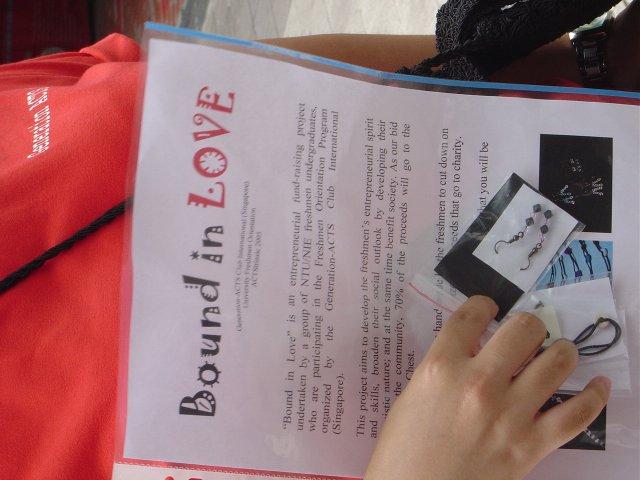 Generation ACTS
Bound in LOVE
Generation-ACTS Club International (Singapore)
University Freshmen Orientation
"Bound in Love" is an entrepreneurial fund-raising project
undertaken by a group of NTU/NIE freshmen undergraduates,
who are participating in the Freshmen Orientation Program
organized by the Generation-ACTS Club International
(Singapore).
This project aims to develop the freshmen's entrepreneurial spirit
and skills, broaden their social outlook by developing their
istic nature; and at the same time benefit society. As our bid
the community, 70% of the proceeds will go to the
Chest.
hand the freshmen to cut down on
eeds that go to charity.
that you will be